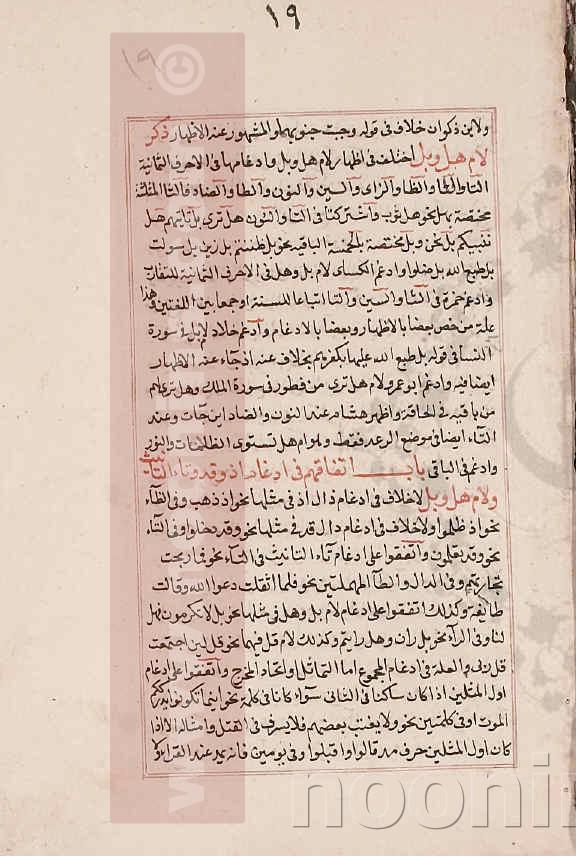 ١٩
١٩
ولابن ذكوان خلاف في قوله وجبت جنوبها والمشهور عنه الاظهار ذكر
لام هل وبل اختلف في اظهار لام هل وبل وادغامها في الاحرف الثمانية
التا والثا والظا والزاى والسين والنون والطا والضاد فالثا المثلثة
مختصة بهل نحو هل ثوب واشتركتا في التا والنون هل ترى بل تاتيهم هل
ننبيكم بل نحن وبل مختصة بالخمسة الباقيه نحو بل ظننتم بل زين بل سولت
بل طبع الله بل ضلوا وادغم الكساى لام بل وهل في الاحرف الثمانية للتقارب
وادغم حمزة في الثا والسين والتا اتباعا للسنة او جمعا بين اللغتين وهذا
علة من خص بعضا بالاظهار وبعضا بالادغام وادغم خلاد لام بل في سورة
النسا في قوله بل طبع الله عليها بكفرهم بخلاف عنه اذ جاء عنه الاظهار
ايضا فيه وادغم ابو عمرو لام هل ترى من فطور في سورة الملك وهل ترى لهم
من باقية في الحاقة واظهر هشام عند النون والضاد اين جات وعند
التاء ايضا في موضع الرعد فقط وهو ام هل تستوى الظلمات والنور
وادغم في الباقي باب اتفاقهم في ادغام اذ وقد وتاء التانيث
ولام هل وبل لاخلاف في ادغام ذال اذ في مثلها نحو اذ ذهب وفي الظاء
نحو اذ ظلموا ولاخلاف في ادغام دال قد في مثلها نحو وقد دخلوا وفي التاء
نحو وقد تعلمون واتفقوا على ادغام تاء التانيث في التاء نحو فما ربحت
تجارتهم وفي الدال والطا المهملتين نحو فلما اثقلت دعوا الله وقالت
طايفة وكذلك اتفقوا على ادغام لام بل وهل في مثلها نحو بل لا تكرمون فهل
لنا وفي الراء نحو بل ران وهل رايتم وكذلك لام قل فيهما نحو قل لين اجتمعت
قل ربي والعلة في ادغام المجموع اما التماثل واتحاد المخرج واتفقوا على ادغام
اول المثلين اذا كان ساكنا في الثاني سواء كانا في كلمة نحو اينما تكونوا يدرككم
الموت او في كلمتين نحو ولا يغتب بعضهم فلا يسرف في القتل وامثاله الا اذا
كان اول المثلين حرف مد قالوا واقبلوا وفي يومين فانه يمد عند القراء و
noonim